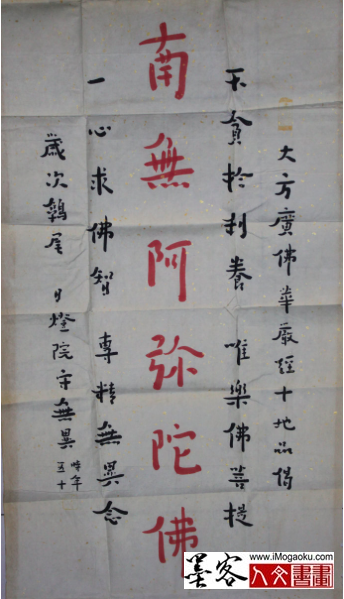 大方廣佛華嚴經十地品偈
不貪於利養 唯樂佛菩提
南無阿弥陀佛
一心求佛智 專精無異念
歲次鶉尾 日燈院守無異
時年五十
墨客
www.iMogaoku.com
人文書畫